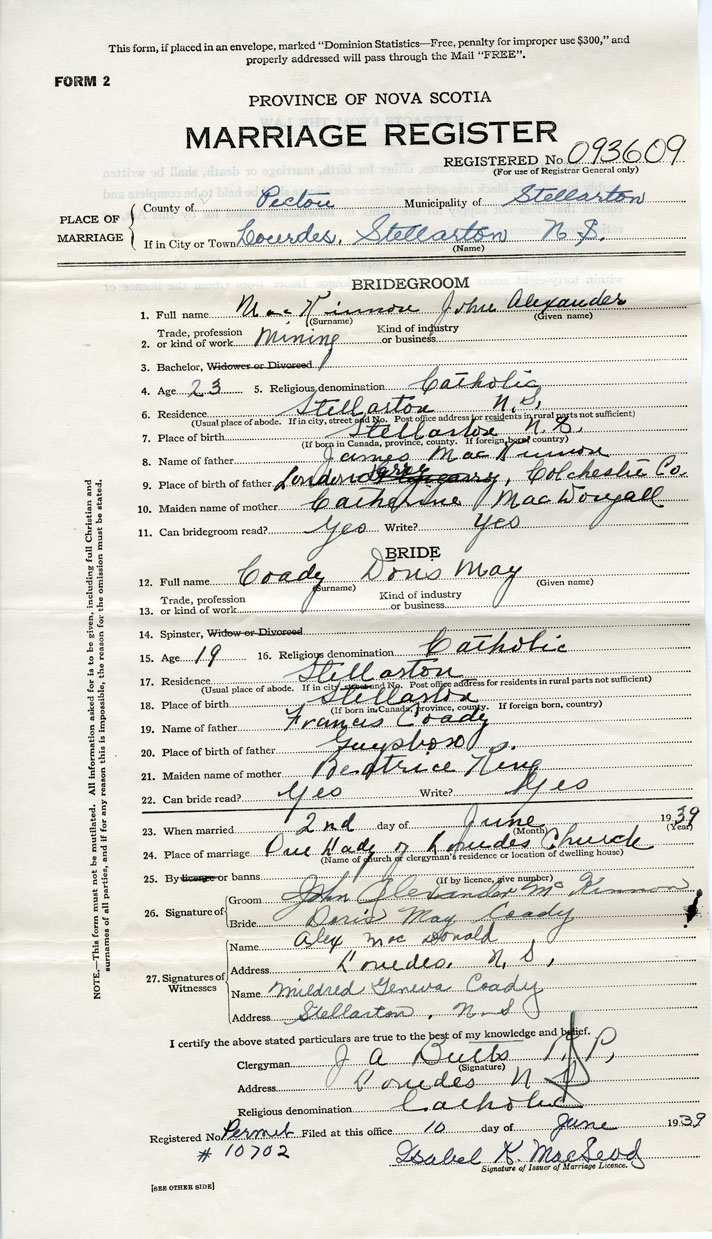 This form, if placed in an envelope, marked "Dominion Statistics—Free, penalty for improper use $300," and
properly addressed will pass through the Mail "FREE".
FORM 2
PROVINCE OF NOVA SCOTIA
MARRIAGE REGISTER
REGISTERED No. 093609
(For use of Registrar General only)
PLACE OF MARRIAGE
County of Pictou Municipality of Stellarton
If in City or Town Lourdes, Stellarton N S.
(Name)
BRIDEGROOM
1. Full name MacKinnon John Alexander
(Surname) (Given name)
2. Trade, profession or kind of work Mining Kind of industry or business
3. Bachelor, Widower or Divorced
4. Age 23 5. Religious denomination Catholic
6. Residence Stellarton N.S.
(Usual place of abode. If in city, street and No. Post office address for residents in rural parts not sufficient)
7. Place of birth Stellarton N.S.
(If born in Canada, province, county. If foreign, born country)
8. Name of father James MacKinnon
9. Place of birth of father Londonderry, Colchester Co.
10. Maiden name of mother Catherine MacDougall
11. Can bridegroom read? Yes Write? Yes
BRIDE
12. Full name Coady Doris May
(Surname) (Given name)
13. Trade, profession or kind of work Kind of industry or business
14. Spinster, Widow or Divorced
15. Age 19 16. Religious denomination Catholic
17. Residence Stellarton
(Usual place of abode. If in city, street and No. Post office address for residents in rural parts not sufficient)
18. Place of birth Stellarton
(If born in Canada, province, county. If foreign born, country)
19. Name of father Francis Coady
20. Place of birth of father Guysboro
21. Maiden name of mother Beatrice King
22. Can bride read? Yes Write? Yes
23. When married 2nd day of June 1939
(Month) (Year)
24. Place of marriage Our Lady of Lourdes Church
(Name of church or clergyman's residence or location of dwelling house)
25. By license or banns
(If by licence, give number)
26. Signature of
Groom John Alexander McKinnon
Bride Doris May Coady
27. Signatures of Witnesses
Name Alex MacDonald
Address Lourdes, N.S.
Name Mildred Geneva Coady
Address Stellarton, N.S
I certify the above stated particulars are true to the best of my knowledge and belief.
Clergyman J A Butts P.P.
(Signature)
Address Lourdes N S
Religious denomination Catholic
Registered No. Permit Filed at this office 10 day of June 1939
# 10702
Isabel K. MacLeod
Signature of Issuer of Marriage Licence.
[SEE OTHER SIDE]
NOTE.—This form must not be mutilated. All information asked for is to be given, including full Christian and
surnames of all parties, and if for any reason this is impossible, the reason for the omission must be stated.